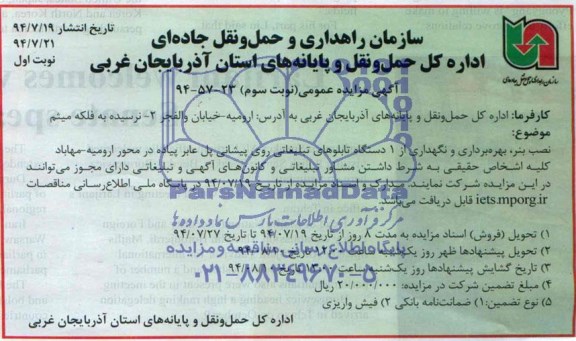 تاریخ انتشار ۹۴/۷/۱۹
۹۴/۷/۲۱
نوبت اول
سازمان راهداری و حمل‌ونقل جاده‌ای
اداره کل حمل‌ونقل و پایانه‌های استان آذربایجان غربی
آگهی مزایده عمومی(نوبت سوم) ۲۳-۵۷-۹۴
کارفرما: اداره کل حمل‌ونقل و پایانه‌های آذربایجان غربی به آدرس: ارومیه-خیابان والفجر ۲- نرسیده به فلکه میثم
موضوع:
نصب بنر، بهره‌برداری و نگهداری از ۱ دستگاه تابلوهای تبلیغاتی روی پیشانی پل عابر پیاده در محور ارومیه-مهاباد
کلیه اشخاص حقیقی به شرط داشتن مشاور تبلیغاتی و کانون‌های آگهی و تبلیغاتی دارای مجوز می‌توانند
در این مزایده شرکت نمایند. مدارک و اسناد مزایده از تاریخ ۹۴/۰۷/۱۹ در پایگاه ملی اطلاع‌رسانی مناقصات
iets.mporg.ir قابل دریافت می‌باشد
۱) تحویل (فروش) اسناد مزایده به مدت ۸ روز از تاریخ ۹۴/۰۷/۱۹ تا تاریخ ۹۴/۰۷/۲۷
۲) تحویل پیشنهادها ظهر روز
۳) تاریخ گشایش پیشنهادها روز یکشنبه
۴) مبلغ تضمین شرکت در مزایده: ۲۰/۰۰۰/۰۰۰ ریال
۵) نوع تضمین:۱) ضمانت‌نامه بانکی ۲) فیش واریزی
اداره کل حمل‌ونقل و پایانه‌های استان آذربایجان غربی
ParsNamadData
مرکز فرآوری اطلاعات پارس نماد داده‌ها
پایگاه اطلاع رسانی مناقصه و مزایده
۰۲۱-۸۸۳۴۹۶۷۰-۵